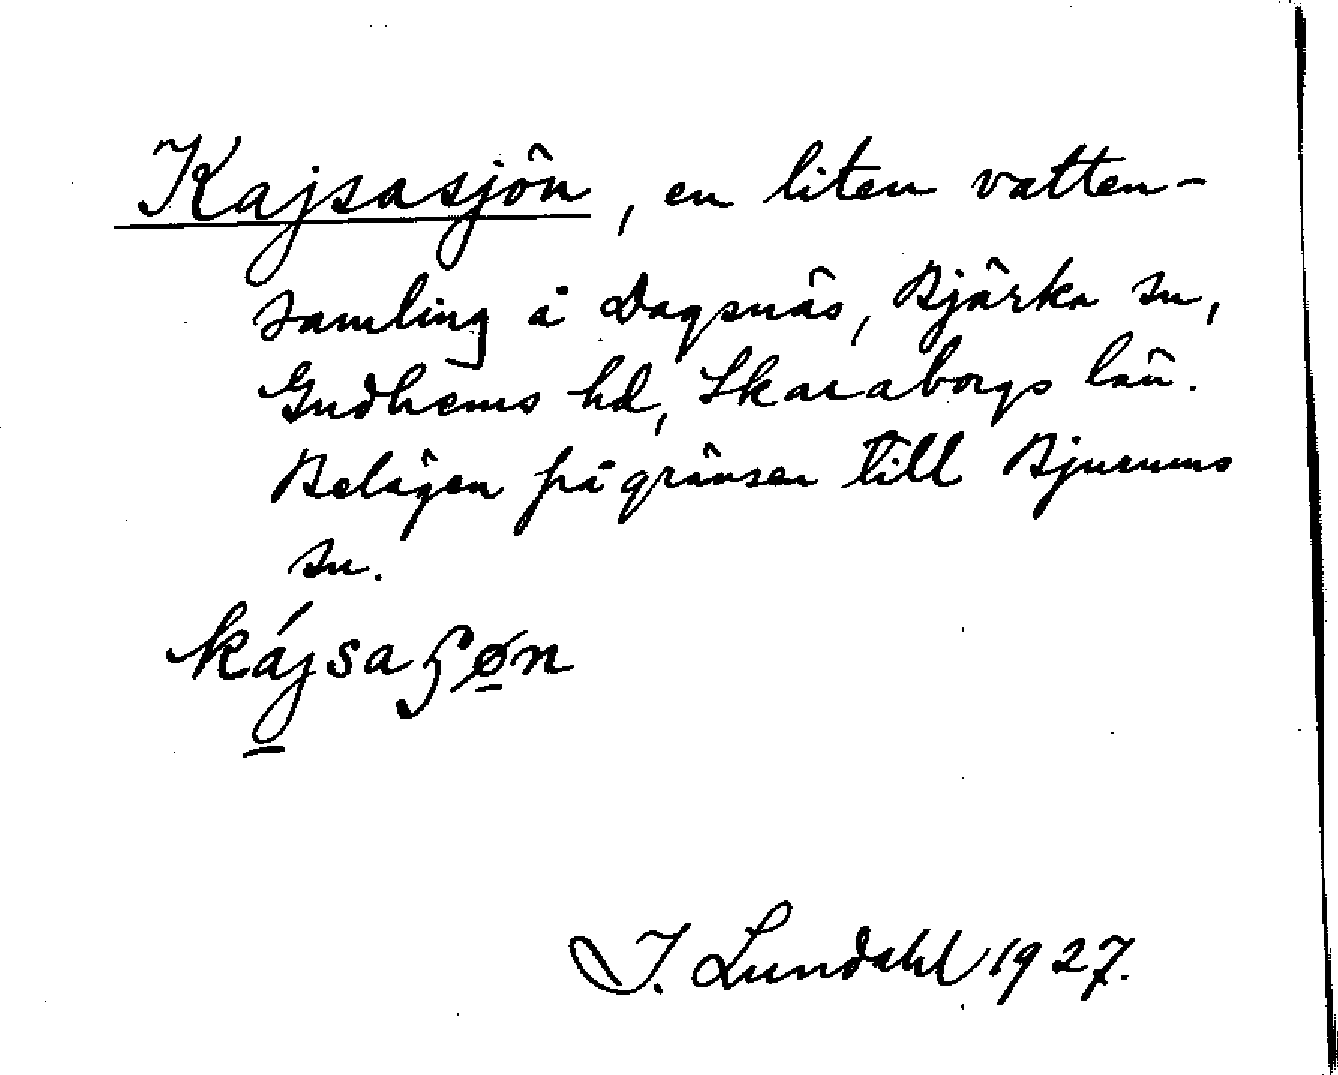 Kajsasjön, en liten vatten-
samling å Dagsnäs, Bjärka sn,
Gudhems hd, Skaraborgs län.
Belägen på gränsen till Bjurums
sn.
kájsaʃøn
I. Lundahl 1927.